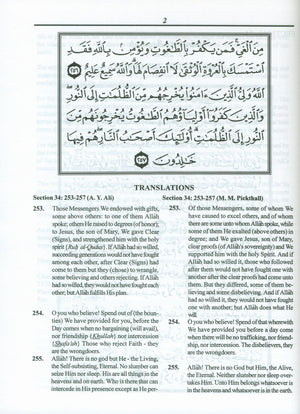 2
مِنَ ٱلْغَىِّ فَمَن يَكْفُرْ بِٱلطَّـٰغُوتِ وَيُؤْمِنۢ بِٱللَّهِ فَقَدِ
ٱسْتَمْسَكَ بِٱلْعُرْوَةِ ٱلْوُثْقَىٰ لَا ٱنفِصَامَ لَهَا وَٱللَّهُ سَمِيعٌ عَلِيمٌ ٢٥٦
ٱللَّهُ وَلِىُّ ٱلَّذِينَ ءَامَنُوا۟ يُخْرِجُهُم مِّنَ ٱلظُّلُمَـٰتِ إِلَى ٱلنُّورِ
وَٱلَّذِينَ كَفَرُوٓا۟ أَوْلِيَآؤُهُمُ ٱلطَّـٰغُوتُ يُخْرِجُونَهُم مِّنَ
ٱلنُّورِ إِلَى ٱلظُّلُمَـٰتِ أُو۟لَـٰٓئِكَ أَصْحَـٰبُ ٱلنَّارِ هُمْ فِيهَا
خَـٰلِدُونَ ٢٥٧
TRANSLATIONS
Section 34: 253-257 (A. Y. Ali)
253. Those Messengers We endowed with gifts,
some above others: to one of them Allāh
spoke; others He raised to degrees (of honor);
to Jesus, the son of Mary, We gave Clear
(Signs), and strengthened him with the holy
spirit (Ruḥ al-Qudus). If Allāh had so willed,
succeeding generations would not have fought
among each other, after Clear (Signs) had
come to them but they (chose) to wrangle,
some believing and others rejecting. If Allāh
had so willed, they would not have fought each
other; but Allāh fulfills His plan.
254. O you who believe! Spend out of (the boun-
ties) We have provided for you, before the
Day comes when no bargaining (will avail),
nor friendship (Khullah) nor intercession
(Shafaʿah) Those who reject Faith - they
are the wrongdoers.
255. Allāh! There is no god but He - the Living,
the Self-subsisting, Eternal. No slumber can
seize Him nor sleep. His are all things in the
heavens and on earth. Who is there that can
intercede in His presence except as He per-
Section 34: 253-257 (M. M. Pickthall)
253. Of those messengers, some of whom We
have caused to excel others, and of whom
there are some unto whom Allāh spoke, while
some of them He exalted (above others) in
degree; and We gave Jesus, son of Mary,
clear proofs (of Allāh's sovereignty) and We
supported him with the holy Spirit. And if
Allāh had so willed it, those who followed
after them would not have fought one with
another after the clear proofs had come unto
them. But they differed, some of them be-
lieving and some disbelieving. And if Allāh
had so willed it, they would not have fought
one with another; but Allāh does what He
will.
254. O you who believe! Spend of that wherewith
We have provided you before a day come
when there will be no trafficking, nor friend-
ship, nor intercession. The disbelievers, they
are the wrongdoers.
255. Allāh! There is no God but Him, the Alive,
the Eternal. Neither slumber nor sleep over-
takes Him. Unto Him belongs whatsoever is
in the heavens and whatsoever is in the earth.